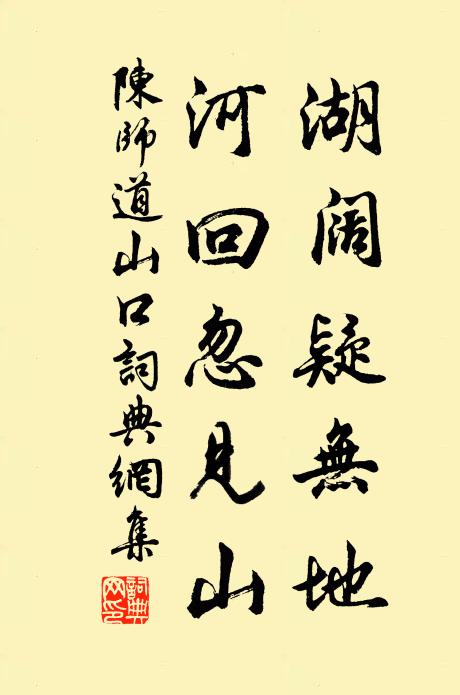 湖阔疑無地
河回忽見山
陳師道山口詞典網集
詞典
网印